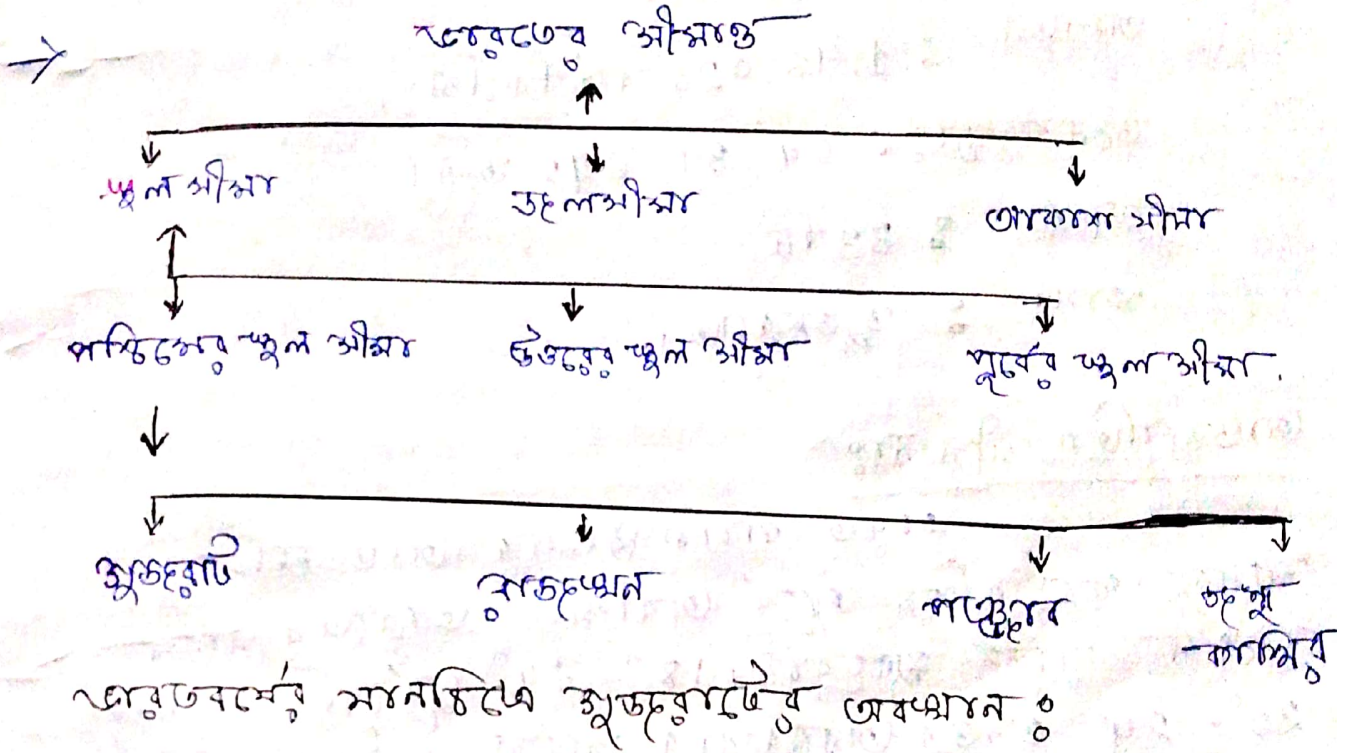 ভারতের সীমান্ত
স্থল সীমা জলসীমা আকাশ সীমা
পশ্চিমের স্থল সীমা উত্তরের স্থল সীমা পূর্বের স্থল সীমা
গুজরাট রাজস্থান পাঞ্জাব জম্মু
কাশ্মির
ভারতবর্ষের মানচিত্রে গুজরাটের অবস্থান :